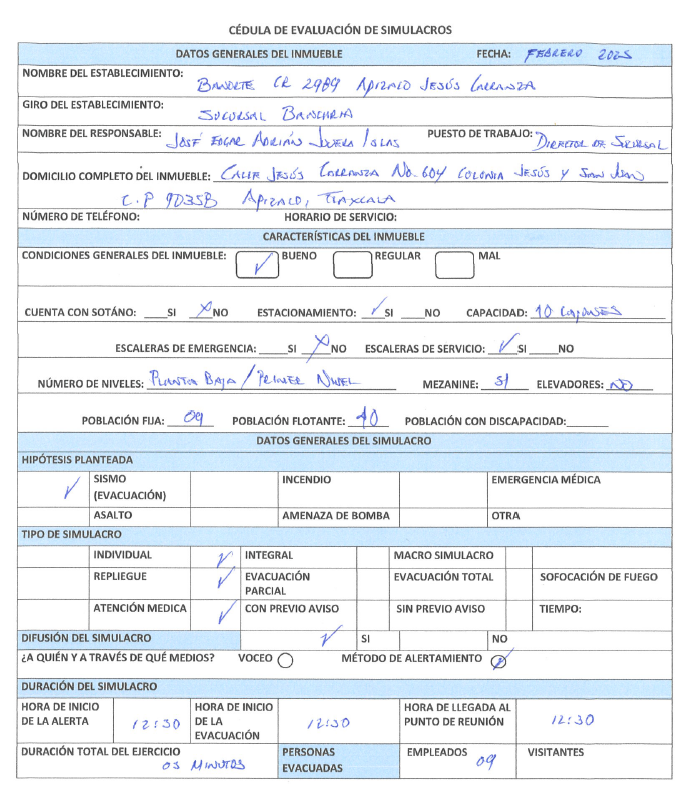 CÉDULA DE EVALUACIÓN DE SIMULACROS
DATOS GENERALES DEL INMUEBLE FECHA: FEBRERO 2025
NOMBRE DEL ESTABLECIMIENTO: BANORTE CR 2989 APIZACO JESÚS CARRANZA
GIRO DEL ESTABLECIMIENTO: SUCURSAL BANCARIA
NOMBRE DEL RESPONSABLE: JOSÉ EDGAR ADRIÁN ISLAS PUESTO DE TRABAJO: DIRECTOR DE SUCURSAL
DOMICILIO COMPLETO DEL INMUEBLE: CALLE JESÚS CARRANZA NO. 604 COLONIA JESÚS Y SAN JUAN
C.P 90358 APIZACO, TLAXCALA
NÚMERO DE TELÉFONO: HORARIO DE SERVICIO:
CARACTERÍSTICAS DEL INMUEBLE
CONDICIONES GENERALES DEL INMUEBLE: ✓ BUENO REGULAR MAL
CUENTA CON SOTÁNO: ____SI __X_NO ESTACIONAMIENTO: __✓_SI ____NO CAPACIDAD: 10 CAJONES
ESCALERAS DE EMERGENCIA: ____SI __X_NO ESCALERAS DE SERVICIO: __✓_SI ____NO
NÚMERO DE NIVELES: PLANTA BAJA / PRIMER NIVEL MEZANINE: SI ELEVADORES: NO
POBLACIÓN FIJA: 09 POBLACIÓN FLOTANTE: 10 POBLACIÓN CON DISCAPACIDAD:______
DATOS GENERALES DEL SIMULACRO
HIPÓTESIS PLANTEADA
✓ SISMO (EVACUACIÓN) INCENDIO EMERGENCIA MÉDICA
ASALTO AMENAZA DE BOMBA OTRA
TIPO DE SIMULACRO
INDIVIDUAL ✓ INTEGRAL MACRO SIMULACRO
REPLIEGUE ✓ EVACUACIÓN PARCIAL EVACUACIÓN TOTAL SOFOCACIÓN DE FUEGO
ATENCIÓN MEDICA ✓ CON PREVIO AVISO SIN PREVIO AVISO TIEMPO:
DIFUSIÓN DEL SIMULACRO ✓ SI NO
¿A QUIÉN Y A TRAVÉS DE QUÉ MEDIOS? VOCEO MÉTODO DE ALERTAMIENTO ✓
DURACIÓN DEL SIMULACRO
HORA DE INICIO DE LA ALERTA 12:30 HORA DE INICIO DE LA EVACUACIÓN 12:30 HORA DE LLEGADA AL PUNTO DE REUNIÓN 12:30
DURACIÓN TOTAL DEL EJERCICIO 03 MINUTOS PERSONAS EVACUADAS EMPLEADOS 09 VISITANTES